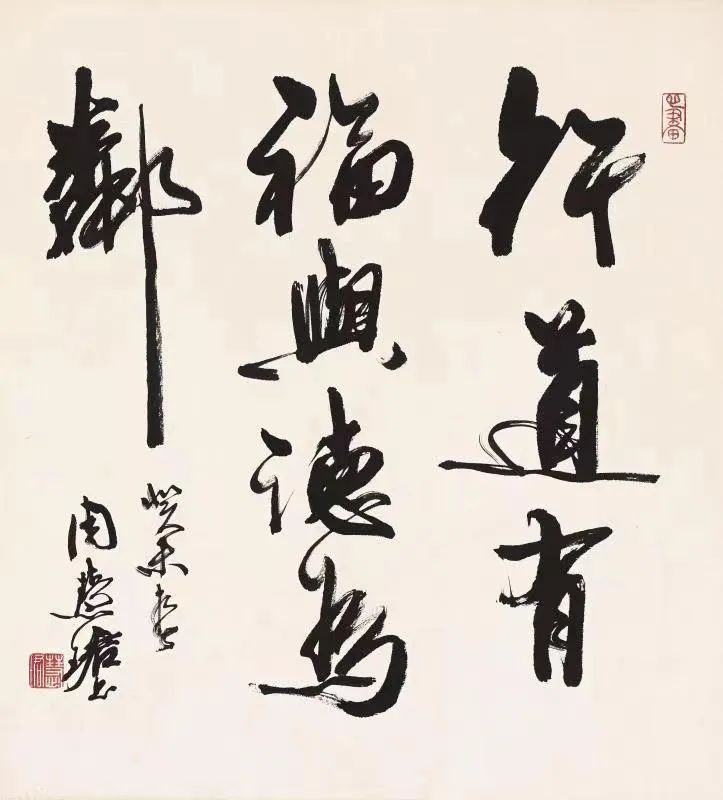 行道有
福與德為
鄰
癸未春
周慧珺